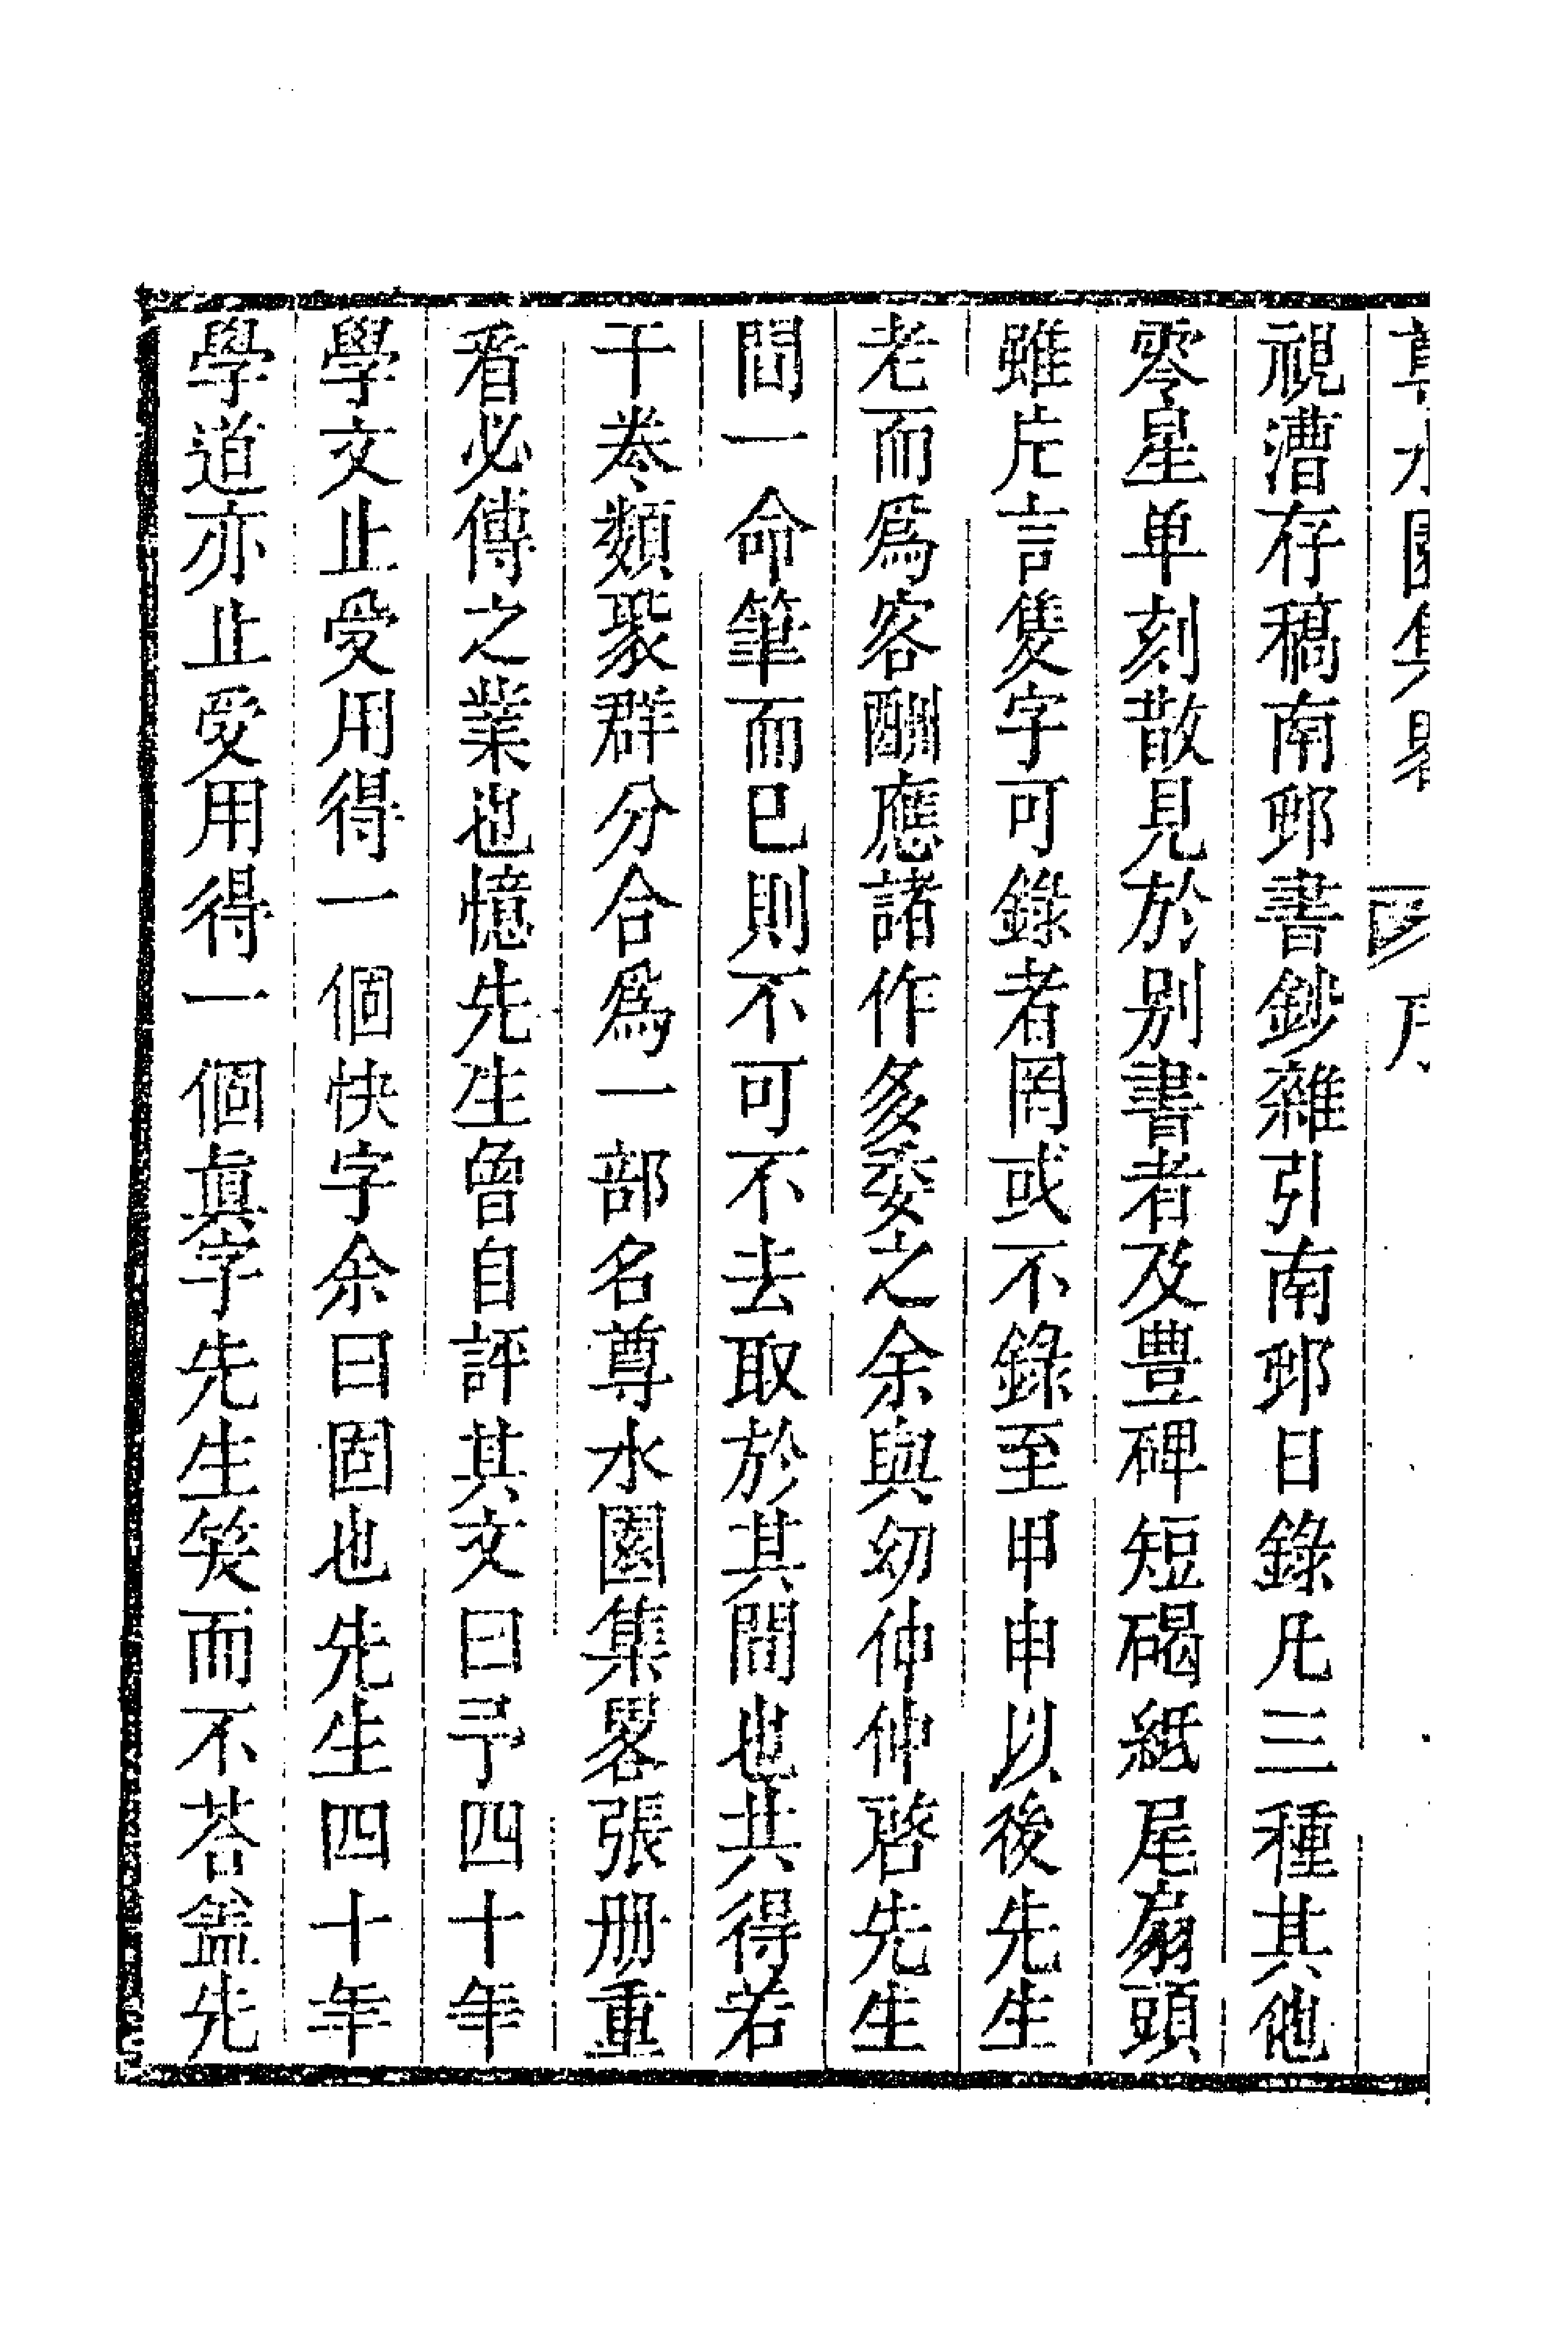 尊水園集畧 序
視漕存稿南邨書鈔雜引南邨日錄凡三種其他
零星单刻散見於别書者及豊碑短碣紙尾扇頭
雖片言隻字可錄者罔或不錄至甲申以後先生
老而爲客酬應諸作多委之余與幼仲仲啓先生
間一命筆而已則不可不去取於其間也共得若
干卷類聚群分合爲一部名尊水園集畧張册重
看必傳之業也憶先生曾自評其文曰予四十年
學文止受用得一個快字余曰固也先生四十年
學道亦止受用得一個眞字先生笑而不荅盖先